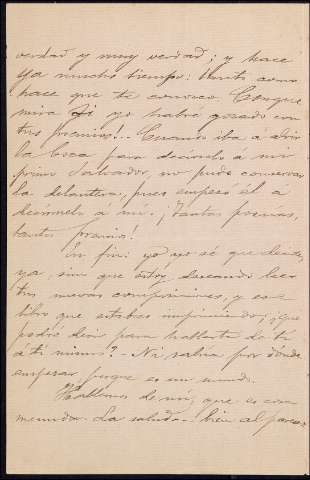 verdad y muy verdad; y hace
ya mucho tiempo: tanto como
hace que te conozco. Conque
mira si yo habré gozado con
tus premios!.. Cuando iba a abrir
la boca para decírselo á mi
primo Salvador, no pude conservar
la delantera, pues empezó él á
decírmelo á mí. ¡Tantos poemas,
tantos premios!
En fin: yo ya sé que
ya, sin que estoy deseando leer
tus nuevas composiciones, y ese
libro que estabas imprimiendo; ¿qué
podré decir para hablarte de tí
á tí mismo? - Ni sabria por donde
empezar porque es un mundo.
Hablemos de mí, que es cosa
menuda. La salud.. bien al parecer